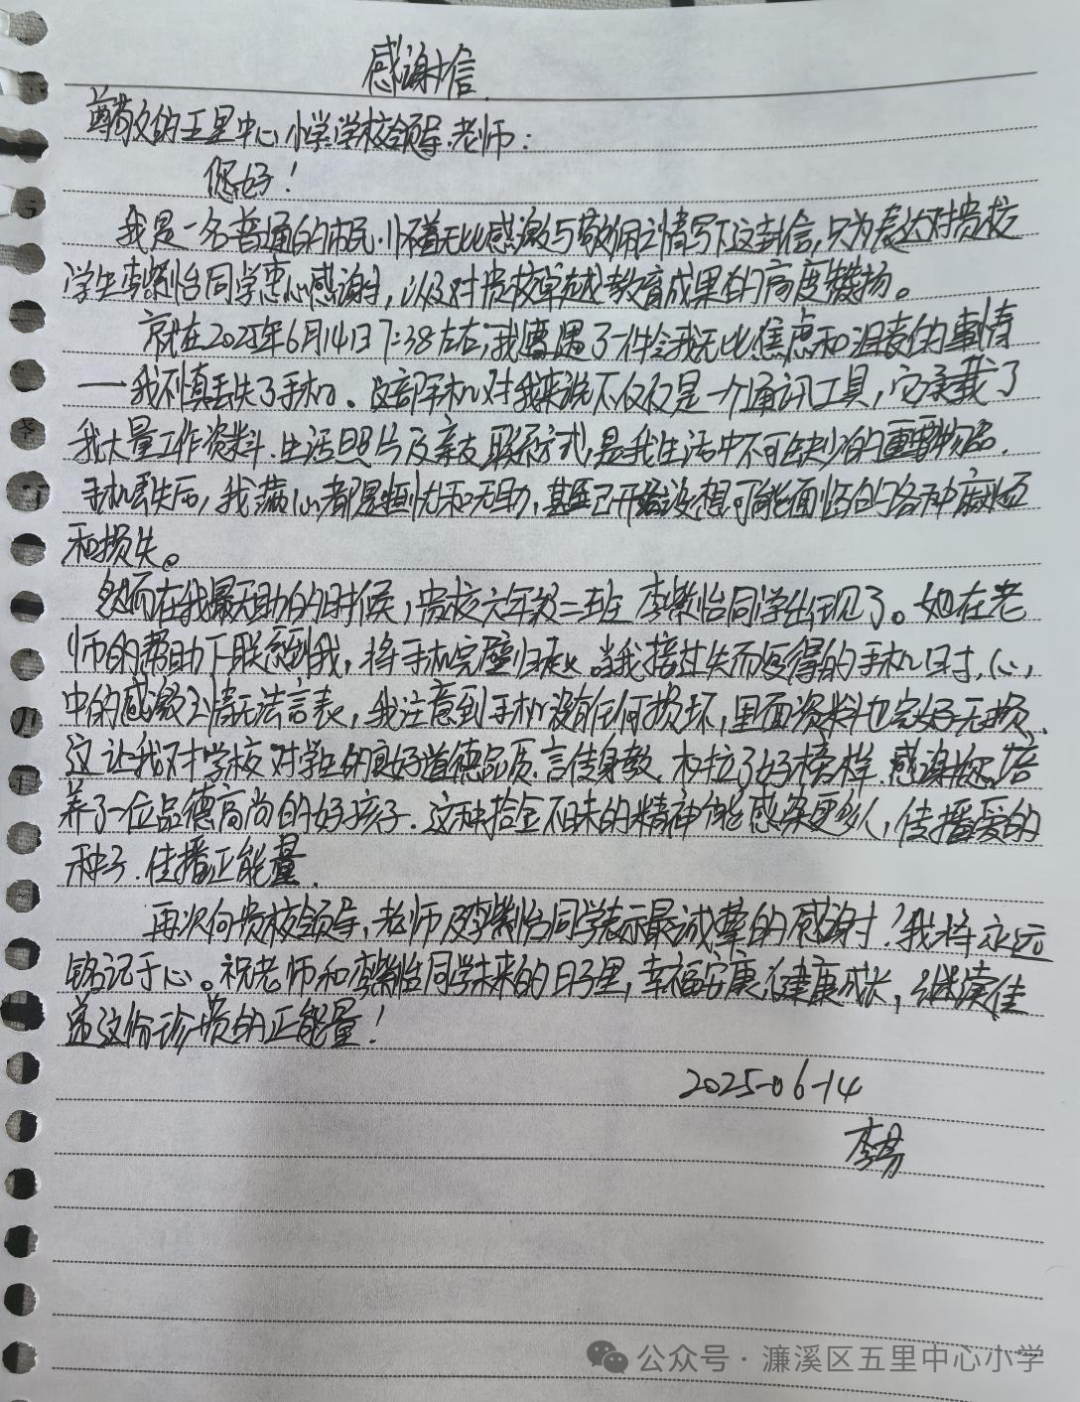 感谢信
尊敬的五里中心小学学校领导、老师:
您好!
我是一名普通的市民,怀着无比感激与敬佩之情写下这封信,只为表达对贵校
学生李紫怡同学衷心感谢,以及对贵校卓越教育成果的高度赞扬。
就在2025年6月14日7:38左右,我遭遇了一件令我无比焦虑和沮丧的事情
——我不慎丢失了手机。这部手机对我来说不仅仅是一个通讯工具,它承载了
我大量工作资料、生活照片及亲友联系方式,是我生活中不可缺少的重要物品.
手机丢失后,我满心都是担忧和无助,甚至已开始设想可能面临的各种麻烦
和损失。
然而在我最无助的时候,贵校六年级二班李紫怡同学出现了。她在老
师的帮助下联系到我,将手机完璧归赵.当我接过失而复得的手机时,心
中的感激之情无法言表,我注意到手机没有任何损坏,里面资料也完好无损.
这让我对学校对学生的良好道德品质、言传身教,树立了好榜样.感谢您培
养了一位品德高尚的好孩子.这种拾金不昧的精神能感染更多人,传播爱的
种子.传播正能量.
再次向贵校领导、老师及李紫怡同学表示最诚挚的感谢!我将永远
铭记于心。祝老师和李紫怡同学未来的日子里,幸福安康,健康成长,继续传
递这份珍贵的正能量!
2025-06-14
李易
公众号·濂溪区五里中心小学